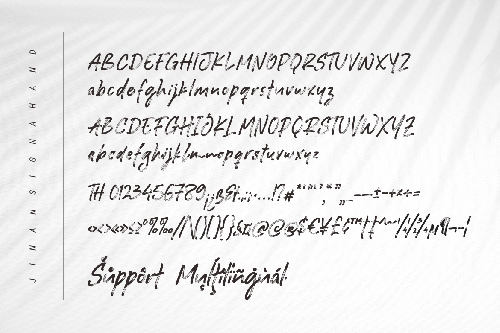 JINANSIGNAHAND
ABCDEFGHIJKLMNOPQRSTUVWXYZ
abcdefghijklmnopqrstuvwxyz
ABCDEFGHIJKLMNOPQRSTUVWXYZ
abcdefghijklmnopqrstuvwxyz
TH 0123456789
Support Multilingual